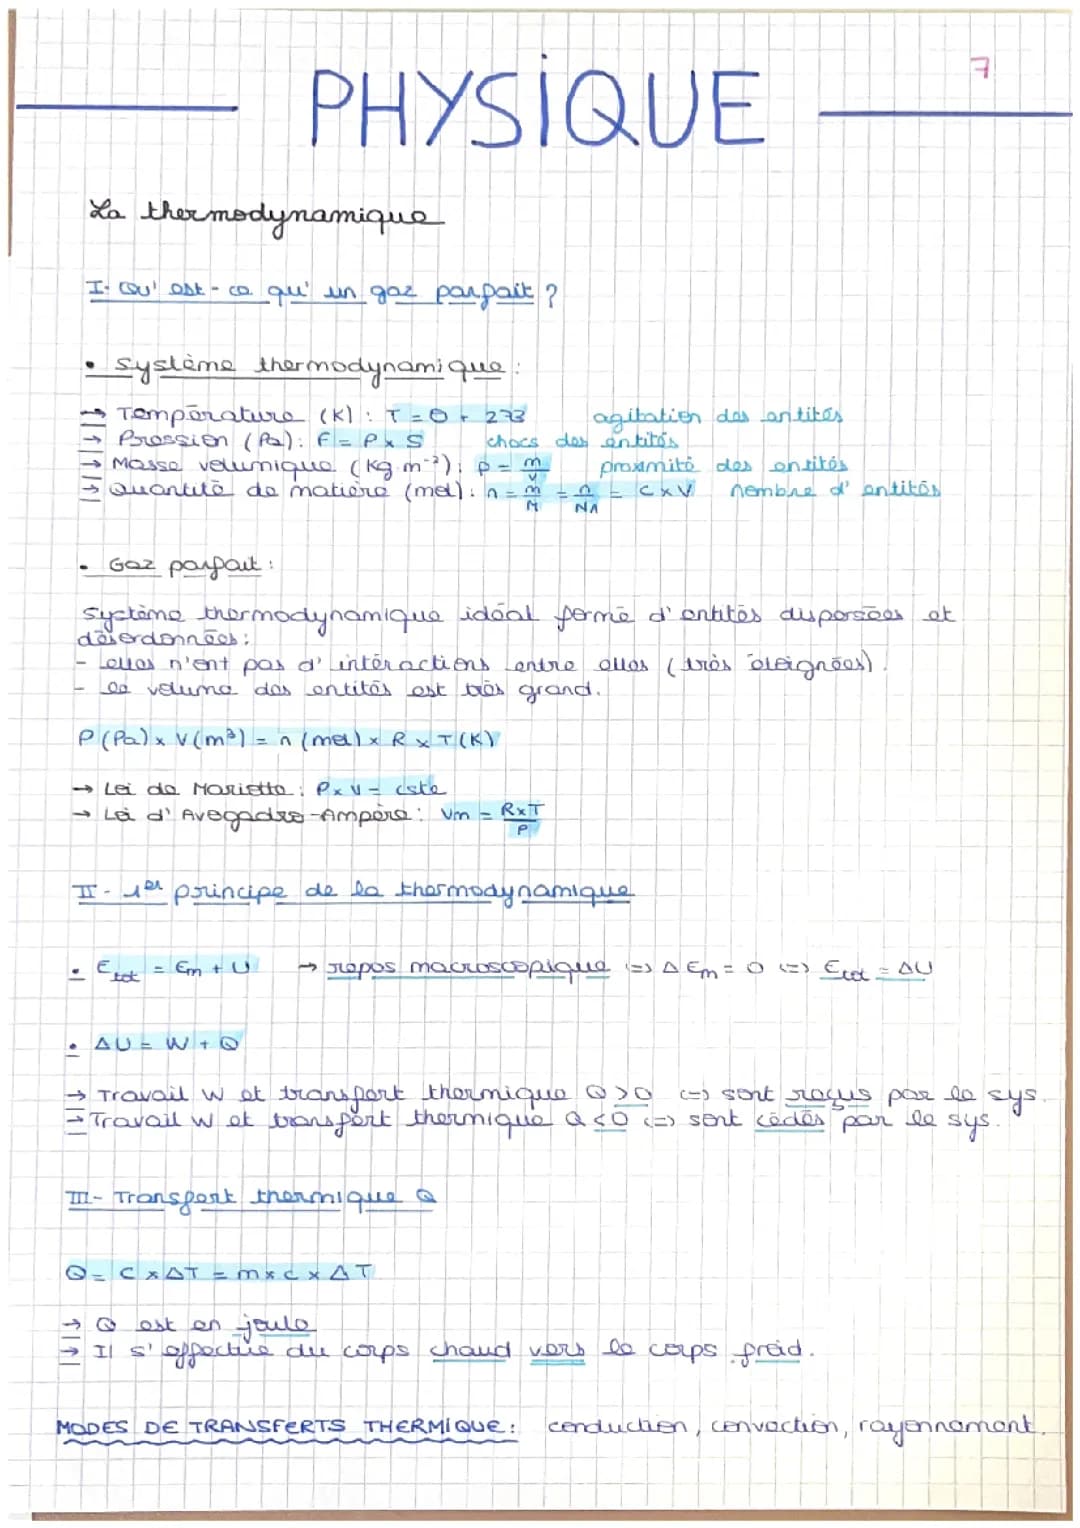 PHYSIQUE
7
La thermodynamique
I- Qu'est-ce qu'un gaz parfait ?
• Système thermodynamique :
→ Température (K) : T = θ + 273 agitation des entités
→ Pression (Pa) : F = P x S chocs des entités
→ Masse volumique (kg.m⁻³) : ρ = m/V proximité des entités
→ Quantité de matière (mol) : n = m/M = n/NA = C x V nombre d'entités
• Gaz parfait :
Système thermodynamique idéal formé d'entités dispersées et
désordonnées :
- elles n'ont pas d'intéractions entre elles (très éloignées).
- le volume des entités est très grand.
P (Pa) x V (m³) = n (mol) x R x T (K)
→ Loi de Mariotte : P x V = cste
→ Loi d'Avogadro-Ampère : Vm = RxT/P
II- 1er principe de la thermodynamique
• Etot = Em + U → repos macroscopique <=> ΔEm = 0 <=> Etot = ΔU
• ΔU = W + Q
→ Travail W et transfert thermique Q > 0 <=> sont reçus par le sys.
→ Travail W et transfert thermique Q < 0 <=> sont cédés par le sys.
III- Transfert thermique Q
Q = C x ΔT = m x c x ΔT
→ Q est en joule
→ Il s'effectue du corps chaud vers le corps froid.
MODES DE TRANSFERTS THERMIQUE : conduction, convection, rayonnement.